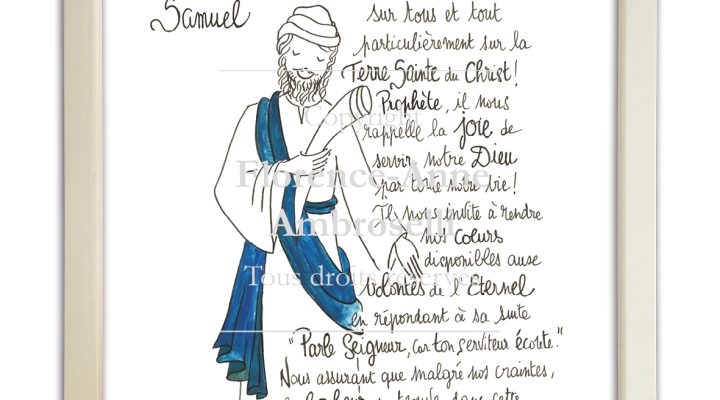 Samuel
sur tous et tout
particulièrement sur la
Terre Sainte du Christ!
Prophète, il nous
rappelle la joie de
servir notre Dieu
par toute notre vie!
Il nous invite à rendre
nos cœurs
disponibles aux
volontés de l'Eternel
en répondant à sa suite
"Parle Seigneur, car ton serviteur écoute."
Nous assurant que malgré nos craintes,
le bonheur se trouve dans cette
Copyright
Florence-Anne
Ambroselli
Tous droits réservés